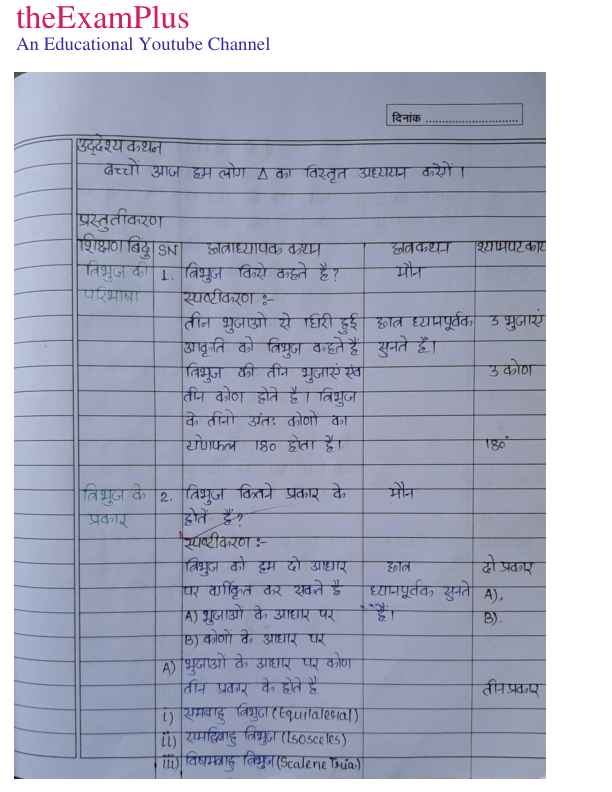 theExamPlus
An Educational Youtube Channel
दिनांक ..............................
उद्देश्य कथन
बच्चों आज हम लोग Δ का विस्तृत अध्ययन करेगें ।
प्रस्तुतीकरण
शिक्षण बिंदु SN छात्राध्यापक कथन छात्रकथन श्यामपट कार्य
त्रिभुज की 1. त्रिभुज किसे कहते है? मौन
परिभाषा स्पष्टीकरण :-
तीन भुजाओं से घिरी हुई छात्र ध्यानपूर्वक 3 भुजाएं
आकृति को त्रिभुज कहते हैं सुनते हैं।
त्रिभुज की तीन भुजाएं एंव 3 कोण
तीन कोण होते है । त्रिभुज
के तीनो अंतः कोणो का
योगफल 180 होता है। 180°
त्रिभुज के 2. त्रिभुज कितने प्रकार के मौन
प्रकार होतें हैं?
स्पष्टीकरण :-
त्रिभुज को हम दो आधार छात्र दो प्रकार
पर वर्गीकृत कर सकते है ध्यानपूर्वक सुनते A).
A) भुजाओं के आधार पर हैं। B).
B) कोणों के आधार पर
A) भुजाओं के आधार पर कोण
तीन प्रकार के होते है तीन प्रकार
i) समबाहु त्रिभुज (Equilateral)
ii) समद्विबाहु त्रिभुज (Isosceles)
iii) विषमबाहु त्रिभुज (Scalene Tria.)